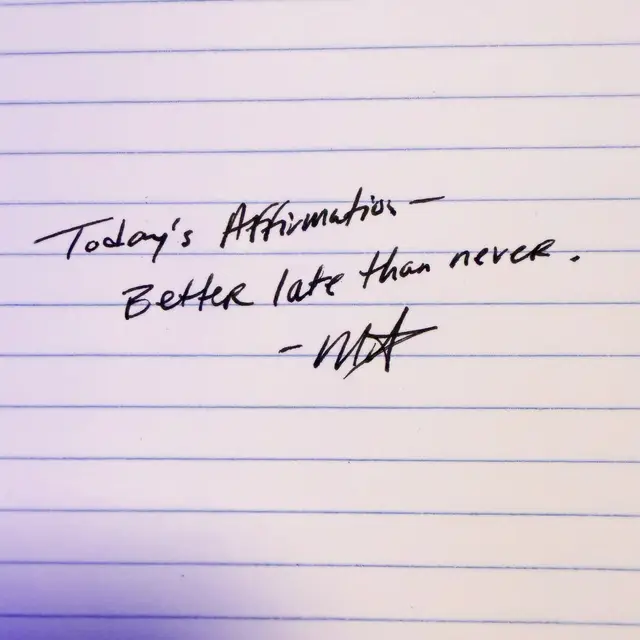 Today's Affirmation —
Better late than never.
- MA